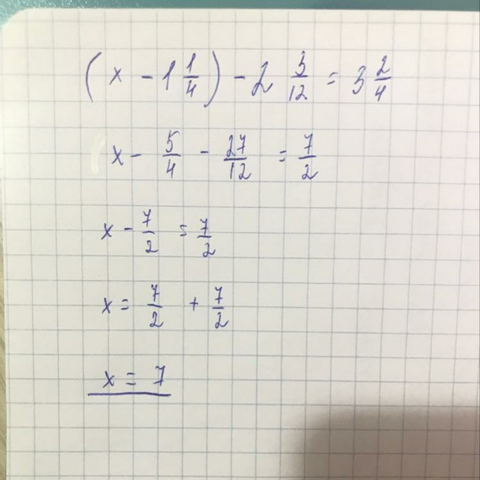 (x - 1 1/4) - 2 3/12 = 3 2/4
x - 5/4 - 27/12 = 7/2
x - 7/2 = 7/2
x = 7/2 + 7/2
x = 7